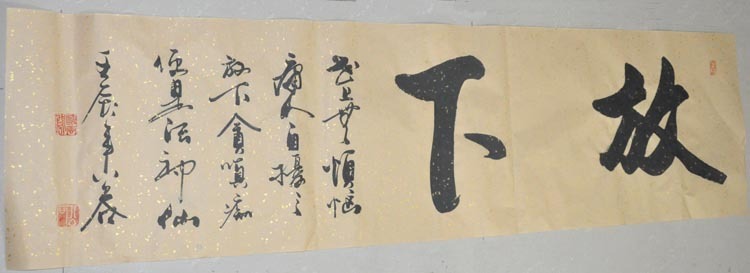 放下
世上無煩惱
庸人自擾之
放下貪嗔痴
便是活神仙
壬辰年